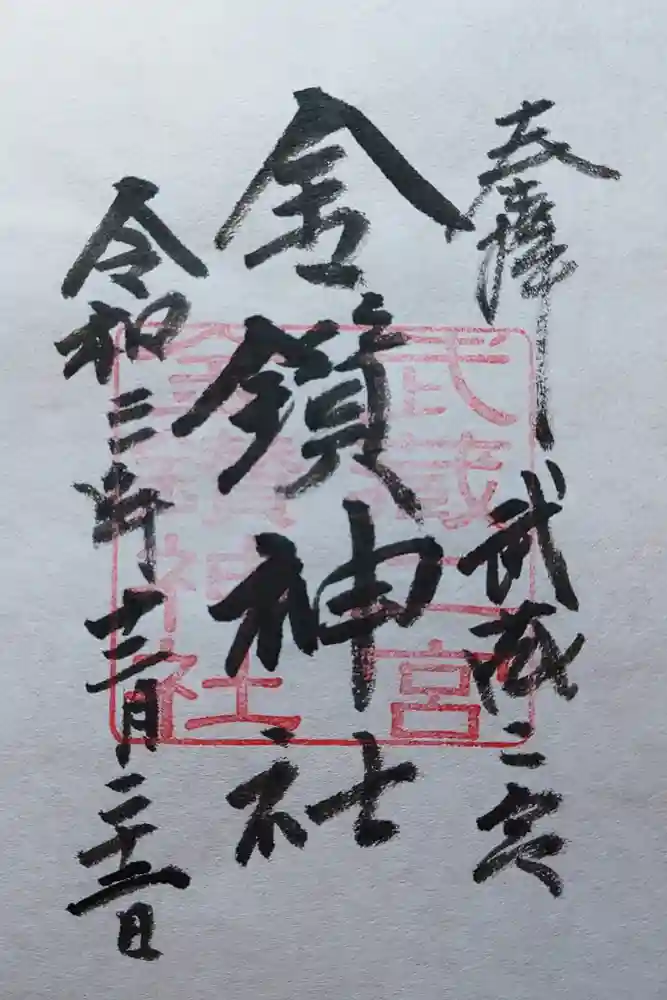 奉拝 武蔵二宮
金鑚神社
令和三年十二月二十二日
武蔵二宮
金鑚神社